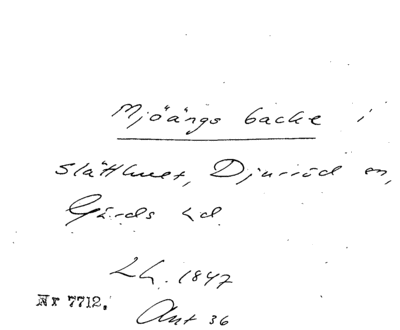 Mjöängs backe i
Slätthuet, Djurröd sn,
Gärds hd.
Lh. 1847
Nr 7712.
Ant 36